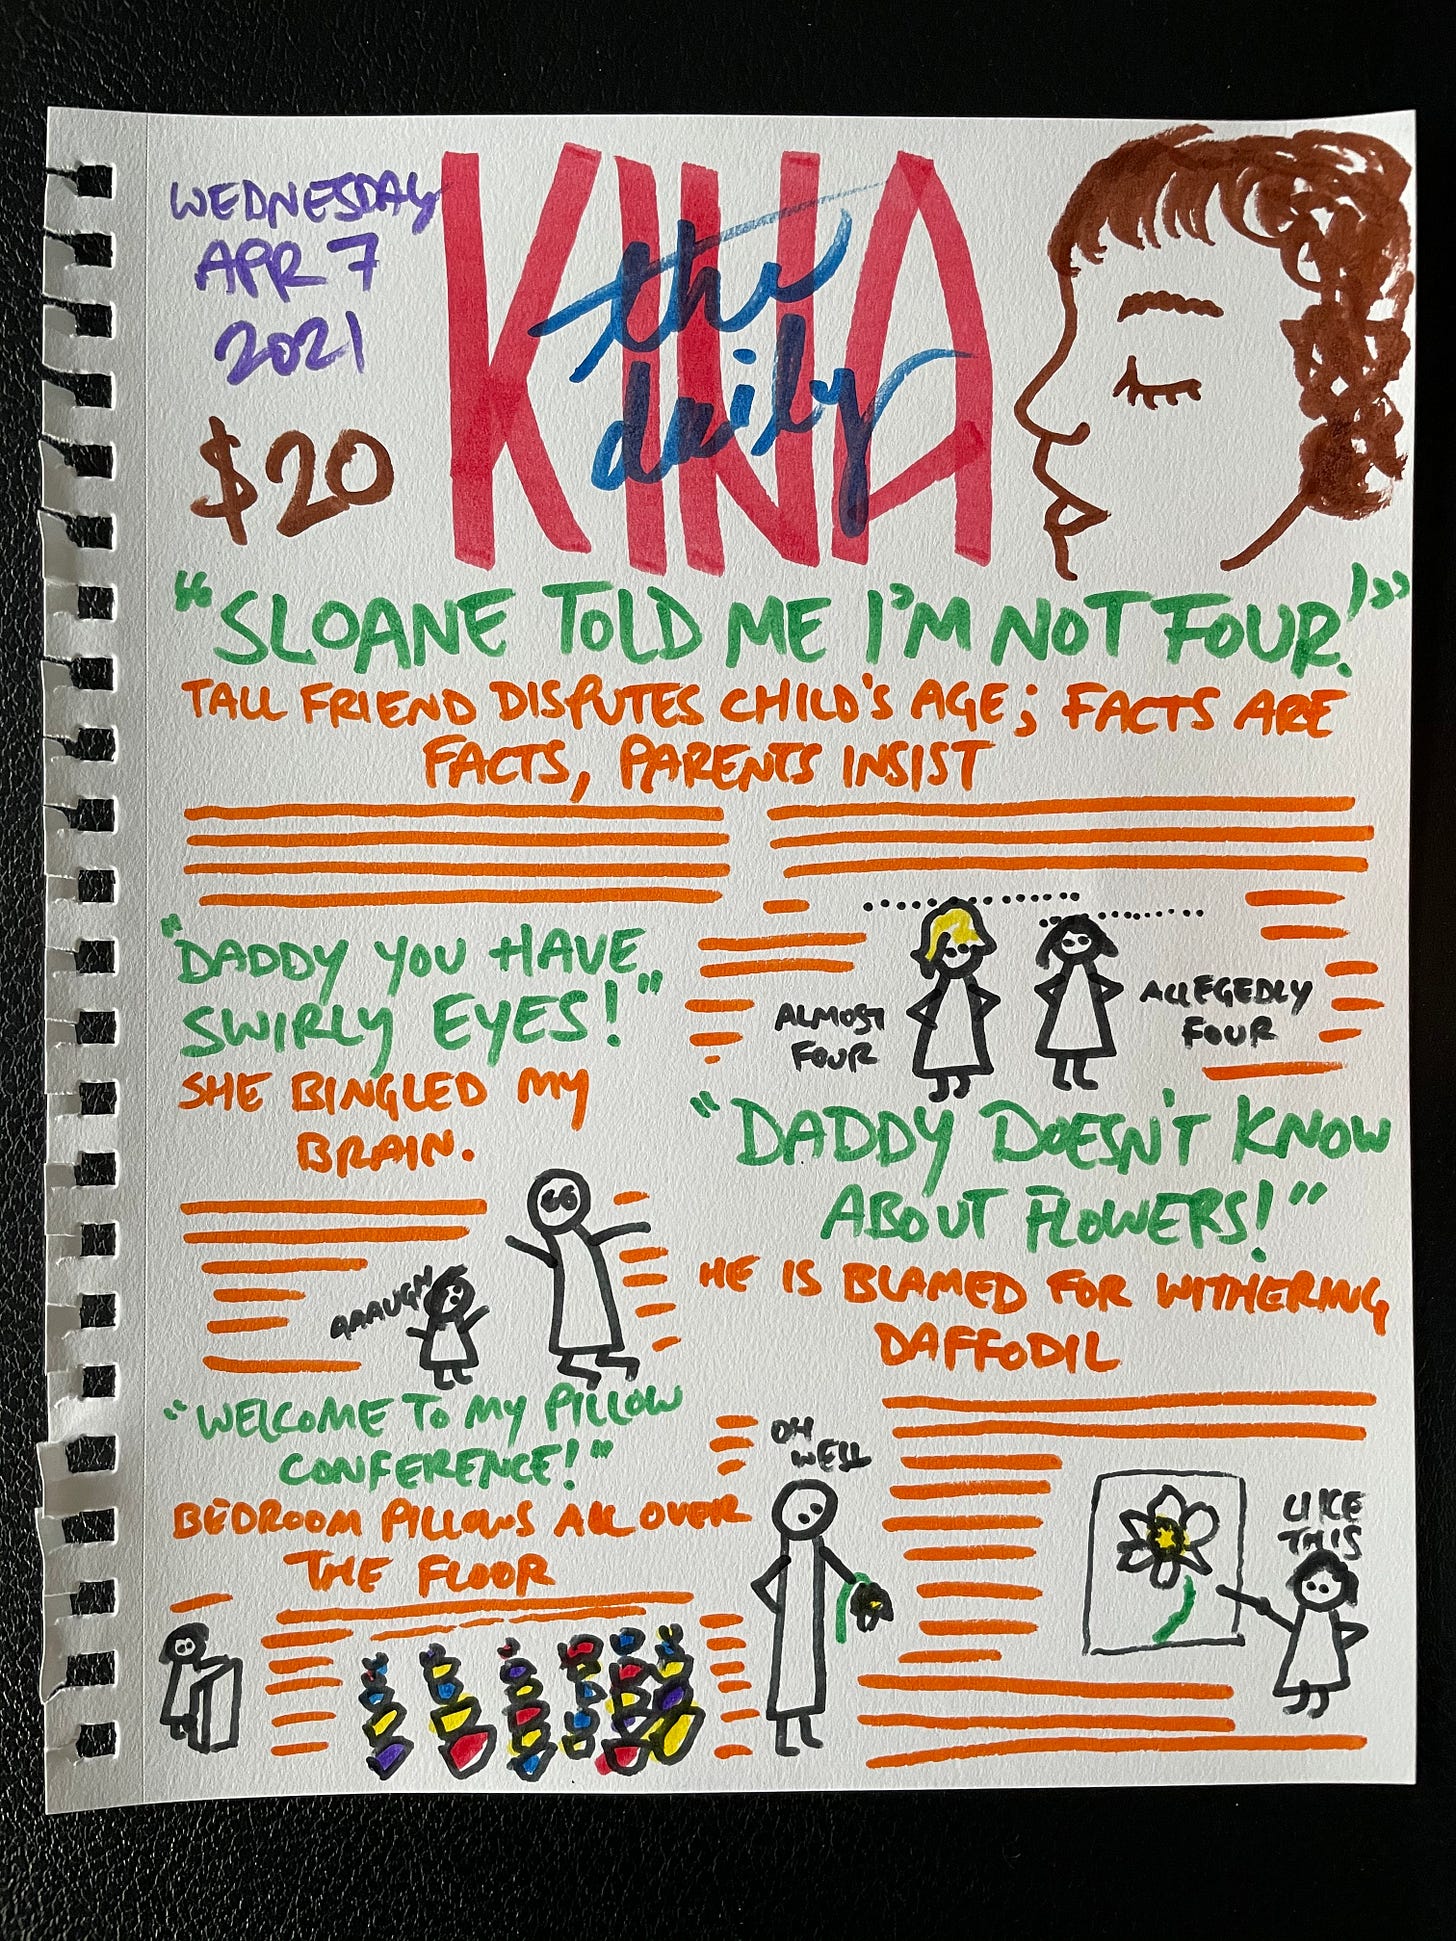 WEDNESDAY
APR 7
2021
$20
the
daily
KINA
"SLOANE TOLD ME I'M NOT FOUR!"
TALL FRIEND DISPUTES CHILD'S AGE; FACTS ARE
FACTS, PARENTS INSIST
ALMOST
FOUR
ALLEGEDLY
FOUR
"DADDY YOU HAVE
SWIRLY EYES!"
SHE BINGLED MY
BRAIN.
AAAUGH
"DADDY DOESN'T KNOW
ABOUT FLOWERS!"
HE IS BLAMED FOR WITHERING
DAFFODIL
OH
WELL
LIKE
THIS
"WELCOME TO MY PILLOW
CONFERENCE!"
BEDROOM PILLOWS ALL OVER
THE FLOOR